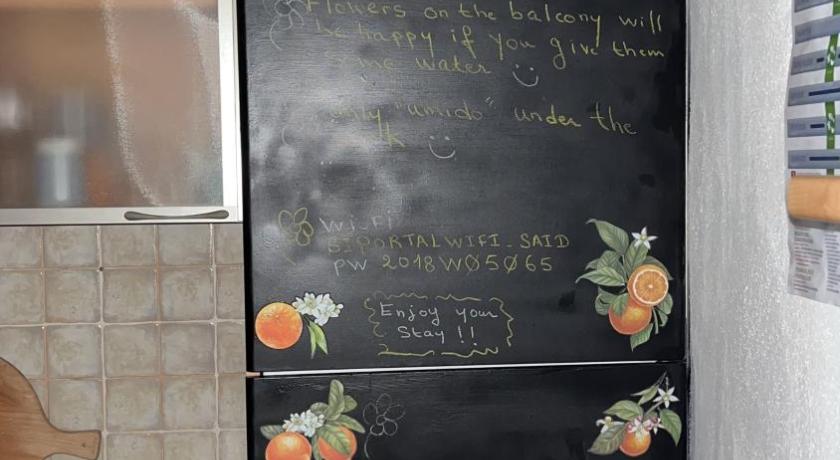 Flowers on the balcony will
be happy if you give them
some water
only "umido" under the
Wi-Fi
SIPORTALWIFI_SAID
PW 2018WØ5Ø65
Enjoy your
Stay !!